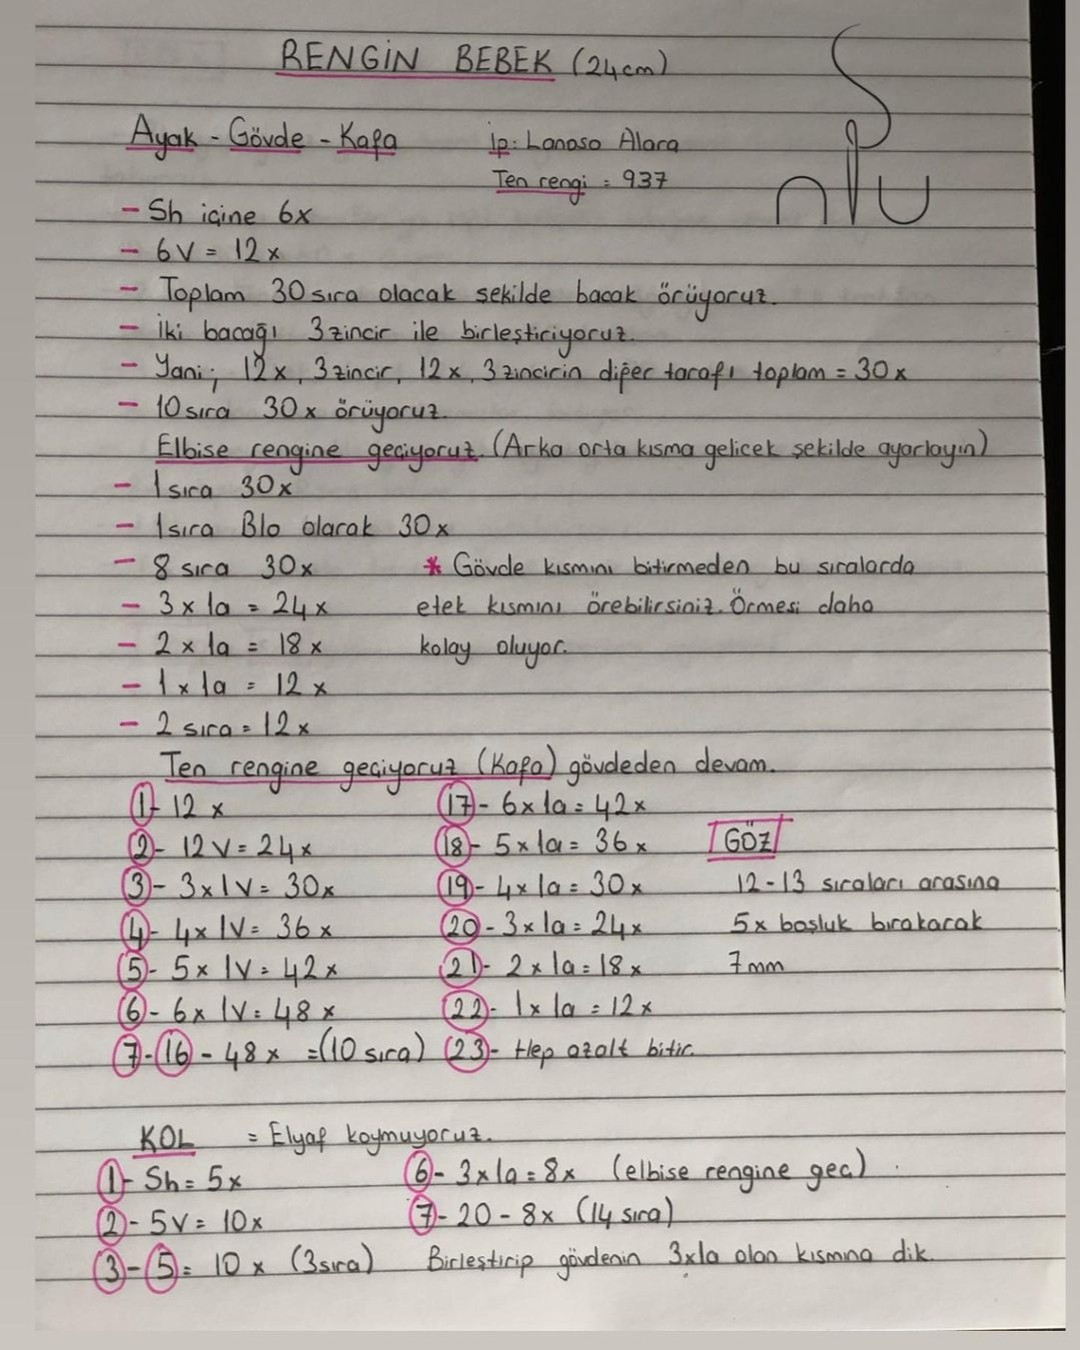 RENGİN BEBEK (24cm)
Ayak - Gövde - Kafa
İp: Lanoso Alara
Ten rengi = 937
- Sh içine 6x
- 6V = 12x
- Toplam 30 sıra olacak şekilde bacak örüyoruz.
- İki bacağı 3 zincir ile birleştiriyoruz.
- Yani; 12x, 3 zincir, 12x, 3 zincirin diğer tarafı toplam = 30x
- 10 sıra 30x örüyoruz.
Elbise rengine geçiyoruz. (Arka orta kısma gelicek şekilde ayarlayın)
- 1 sıra 30x
- 1 sıra Blo olarak 30x
- 8 sıra 30x
- 3x1a = 24x
- 2x1a = 18x
- 1x1a = 12x
- 2 sıra = 12x
* Gövde kısmını bitirmeden bu sıralarda
etek kısmını örebilirsiniz. Örmesi daha
kolay oluyor.
Ten rengine geçiyoruz (Kafa) gövdeden devam.
1- 12x
2- 12V = 24x
3- 3x1V = 30x
4- 4x1V = 36x
5- 5x1V = 42x
6- 6x1V = 48x
7-16 - 48x =(10 sıra)
17- 6x1a = 42x
18- 5x1a = 36x
19- 4x1a = 30x
20- 3x1a = 24x
21- 2x1a = 18x
22- 1x1a = 12x
23- Hep azalt bitir.
GÖZ
12-13 sıraları arasına
5x boşluk bırakarak
7mm
KOL = Elyaf koymuyoruz.
1- Sh = 5x
2- 5V = 10x
3-5 = 10x (3 sıra)
6- 3x1a = 8x (elbise rengine geç)
7- 20 - 8x (14 sıra)
Birleştirip gövdenin 3x1a olan kısmına dik.